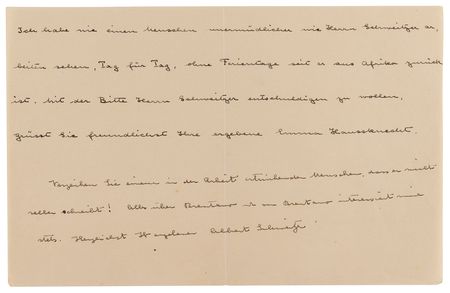 Ich habe nie einen Menschen unermüdlicher wie Herrn Schweitzer ar,
beiten sehen, Tag für Tag, ohne Ferientage seit er aus Afrika zurück
ist. Mit der Bitte Herrn Schweitzer entschuldigen zu wollen,
grüsst Sie freundlichst Ihre ergebene Emma Haussknecht.
Verzeihen Sie einem in der Arbeit ertrinkenden Menschen, dass er nicht
selber schreibt! Alles über Brentano von Brentano interessiert mich
stets. Herzlichst Ihr ergebener Albert Schweitzer